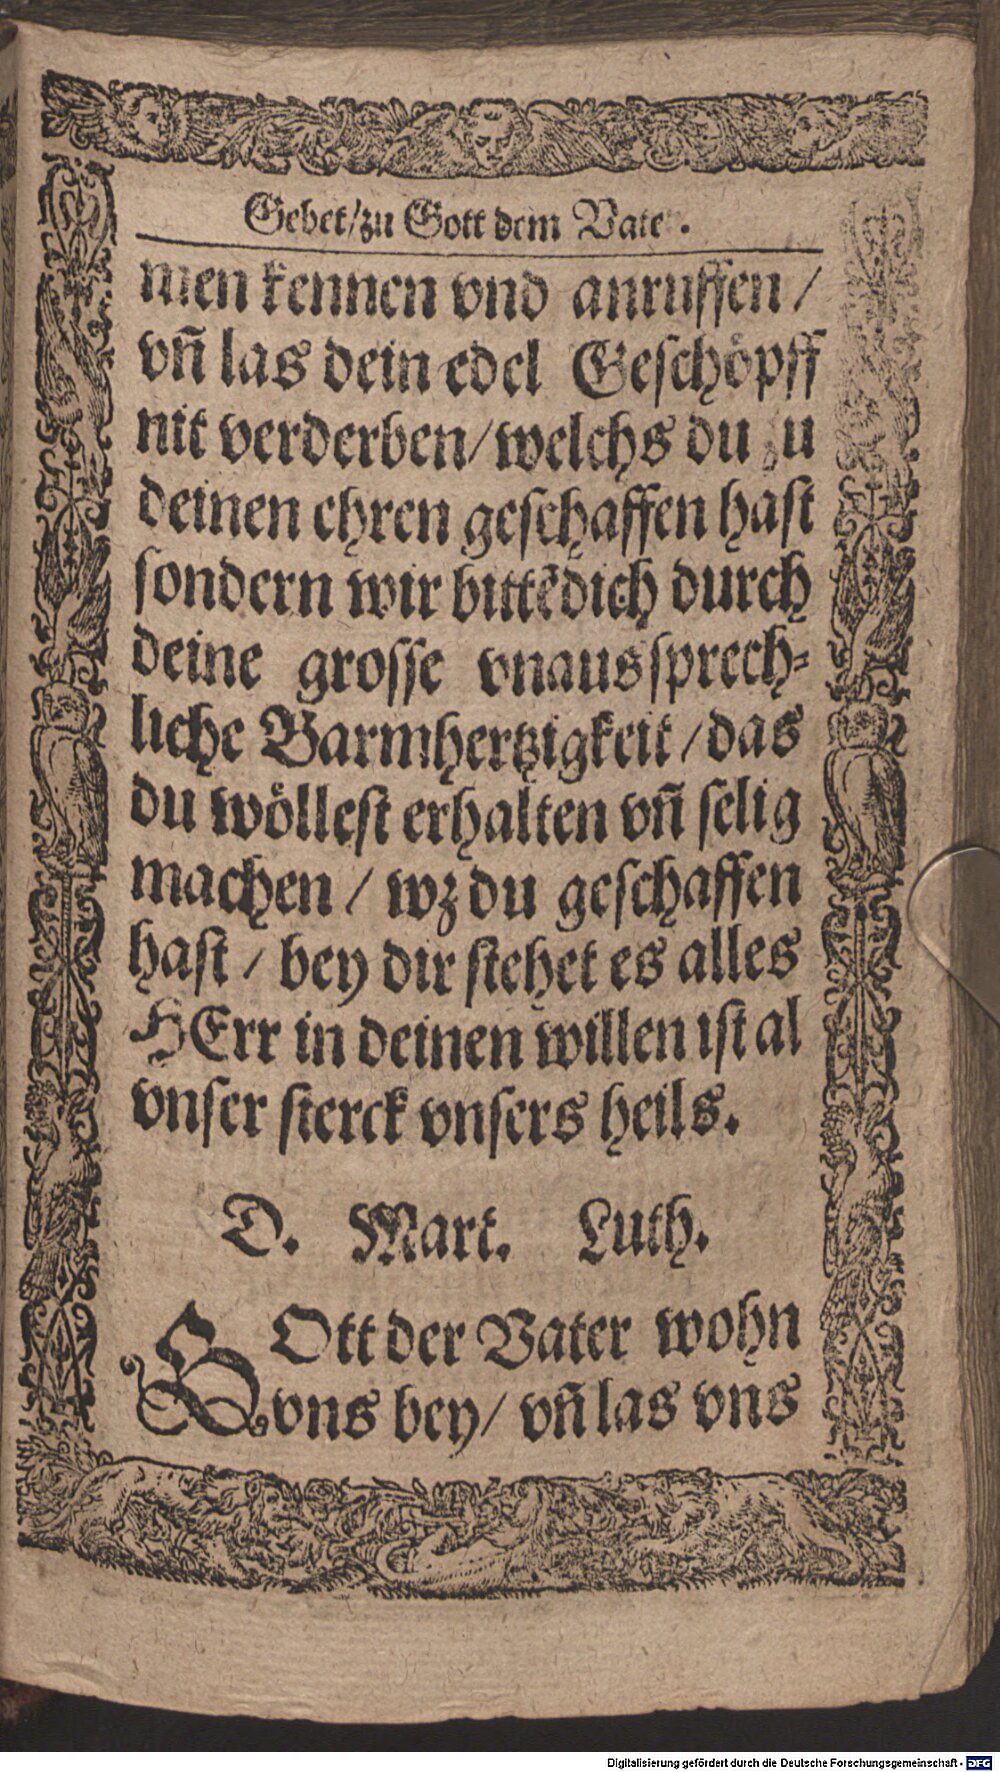 Gebet/zu Gott dem Vate .
men kennen vnd anruffen /
vñ las dein edel Geschöpff
nit verderben/welchs du zu
deinen ehren geschaffen hast
sondern wir bittẽ dich durch
deine grosse vnaussprech-
liche Barmhertzigkeit/das
du wöllest erhalten vñ selig
machen / wz du geschaffen
hast / bey dir stehet es alles
HErr in deinen willen ist al
vnser sterck vnsers heils.
D. Mart. Luth.
GOtt der Vater wohn
vns bey/ vñ las vns
Digitalisierung gefördert durch die Deutsche Forschungsgemeinschaft - DFG